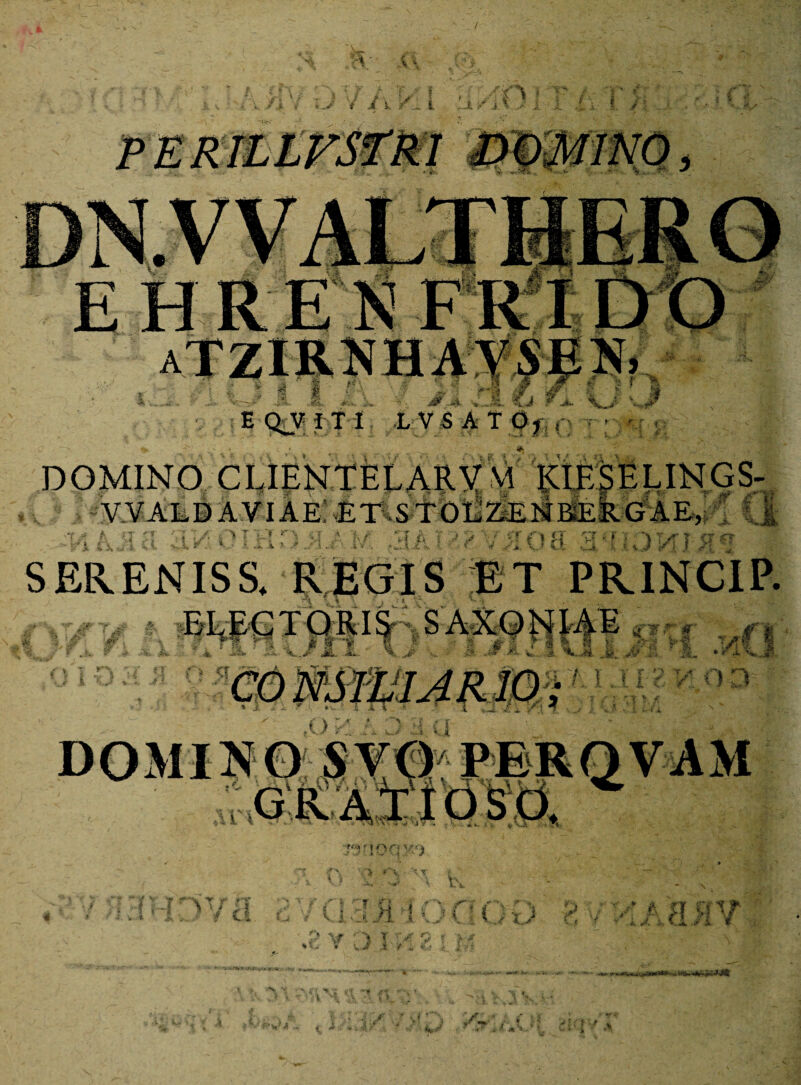 PERILLVSTRI DOMINO,
DN.VVALTHERO
EHRENFRIDO
ATZIRNHAVSEN,
EQVITI LVSATO,
DOMINO CLIENTELARVM KIESELINGS-
VVALDAVIAE ET STOLZENBERGAE,
SERENISS. REGIS ET PRINCIP.
ELECTORIS SAXONIAE
CONSILIARIO;
DOMINO SVO PERQVAM
GRATIOSO.